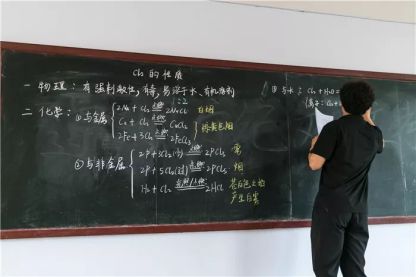 Cl₂的性质
一 物理：有强刺激性,有毒,易溶于水、有机溶剂
二 化学：①与金属
2Na + Cl₂ 点燃 2NaCl 白烟
1:2
Cu + Cl₂ 点燃 CuCl₂ 棕黄色烟
2Fe + 3Cl₂ 点燃 2FeCl₃
②与非金属
2P + 3Cl₂(少) 点燃 2PCl₃ 雾
2P + 5Cl₂(过) 点燃 2PCl₅ 烟
H₂ + Cl₂ 点燃 2HCl 苍白色火焰
产生白雾
③与水：Cl₂ + H₂O =
离子：Cl₂ +